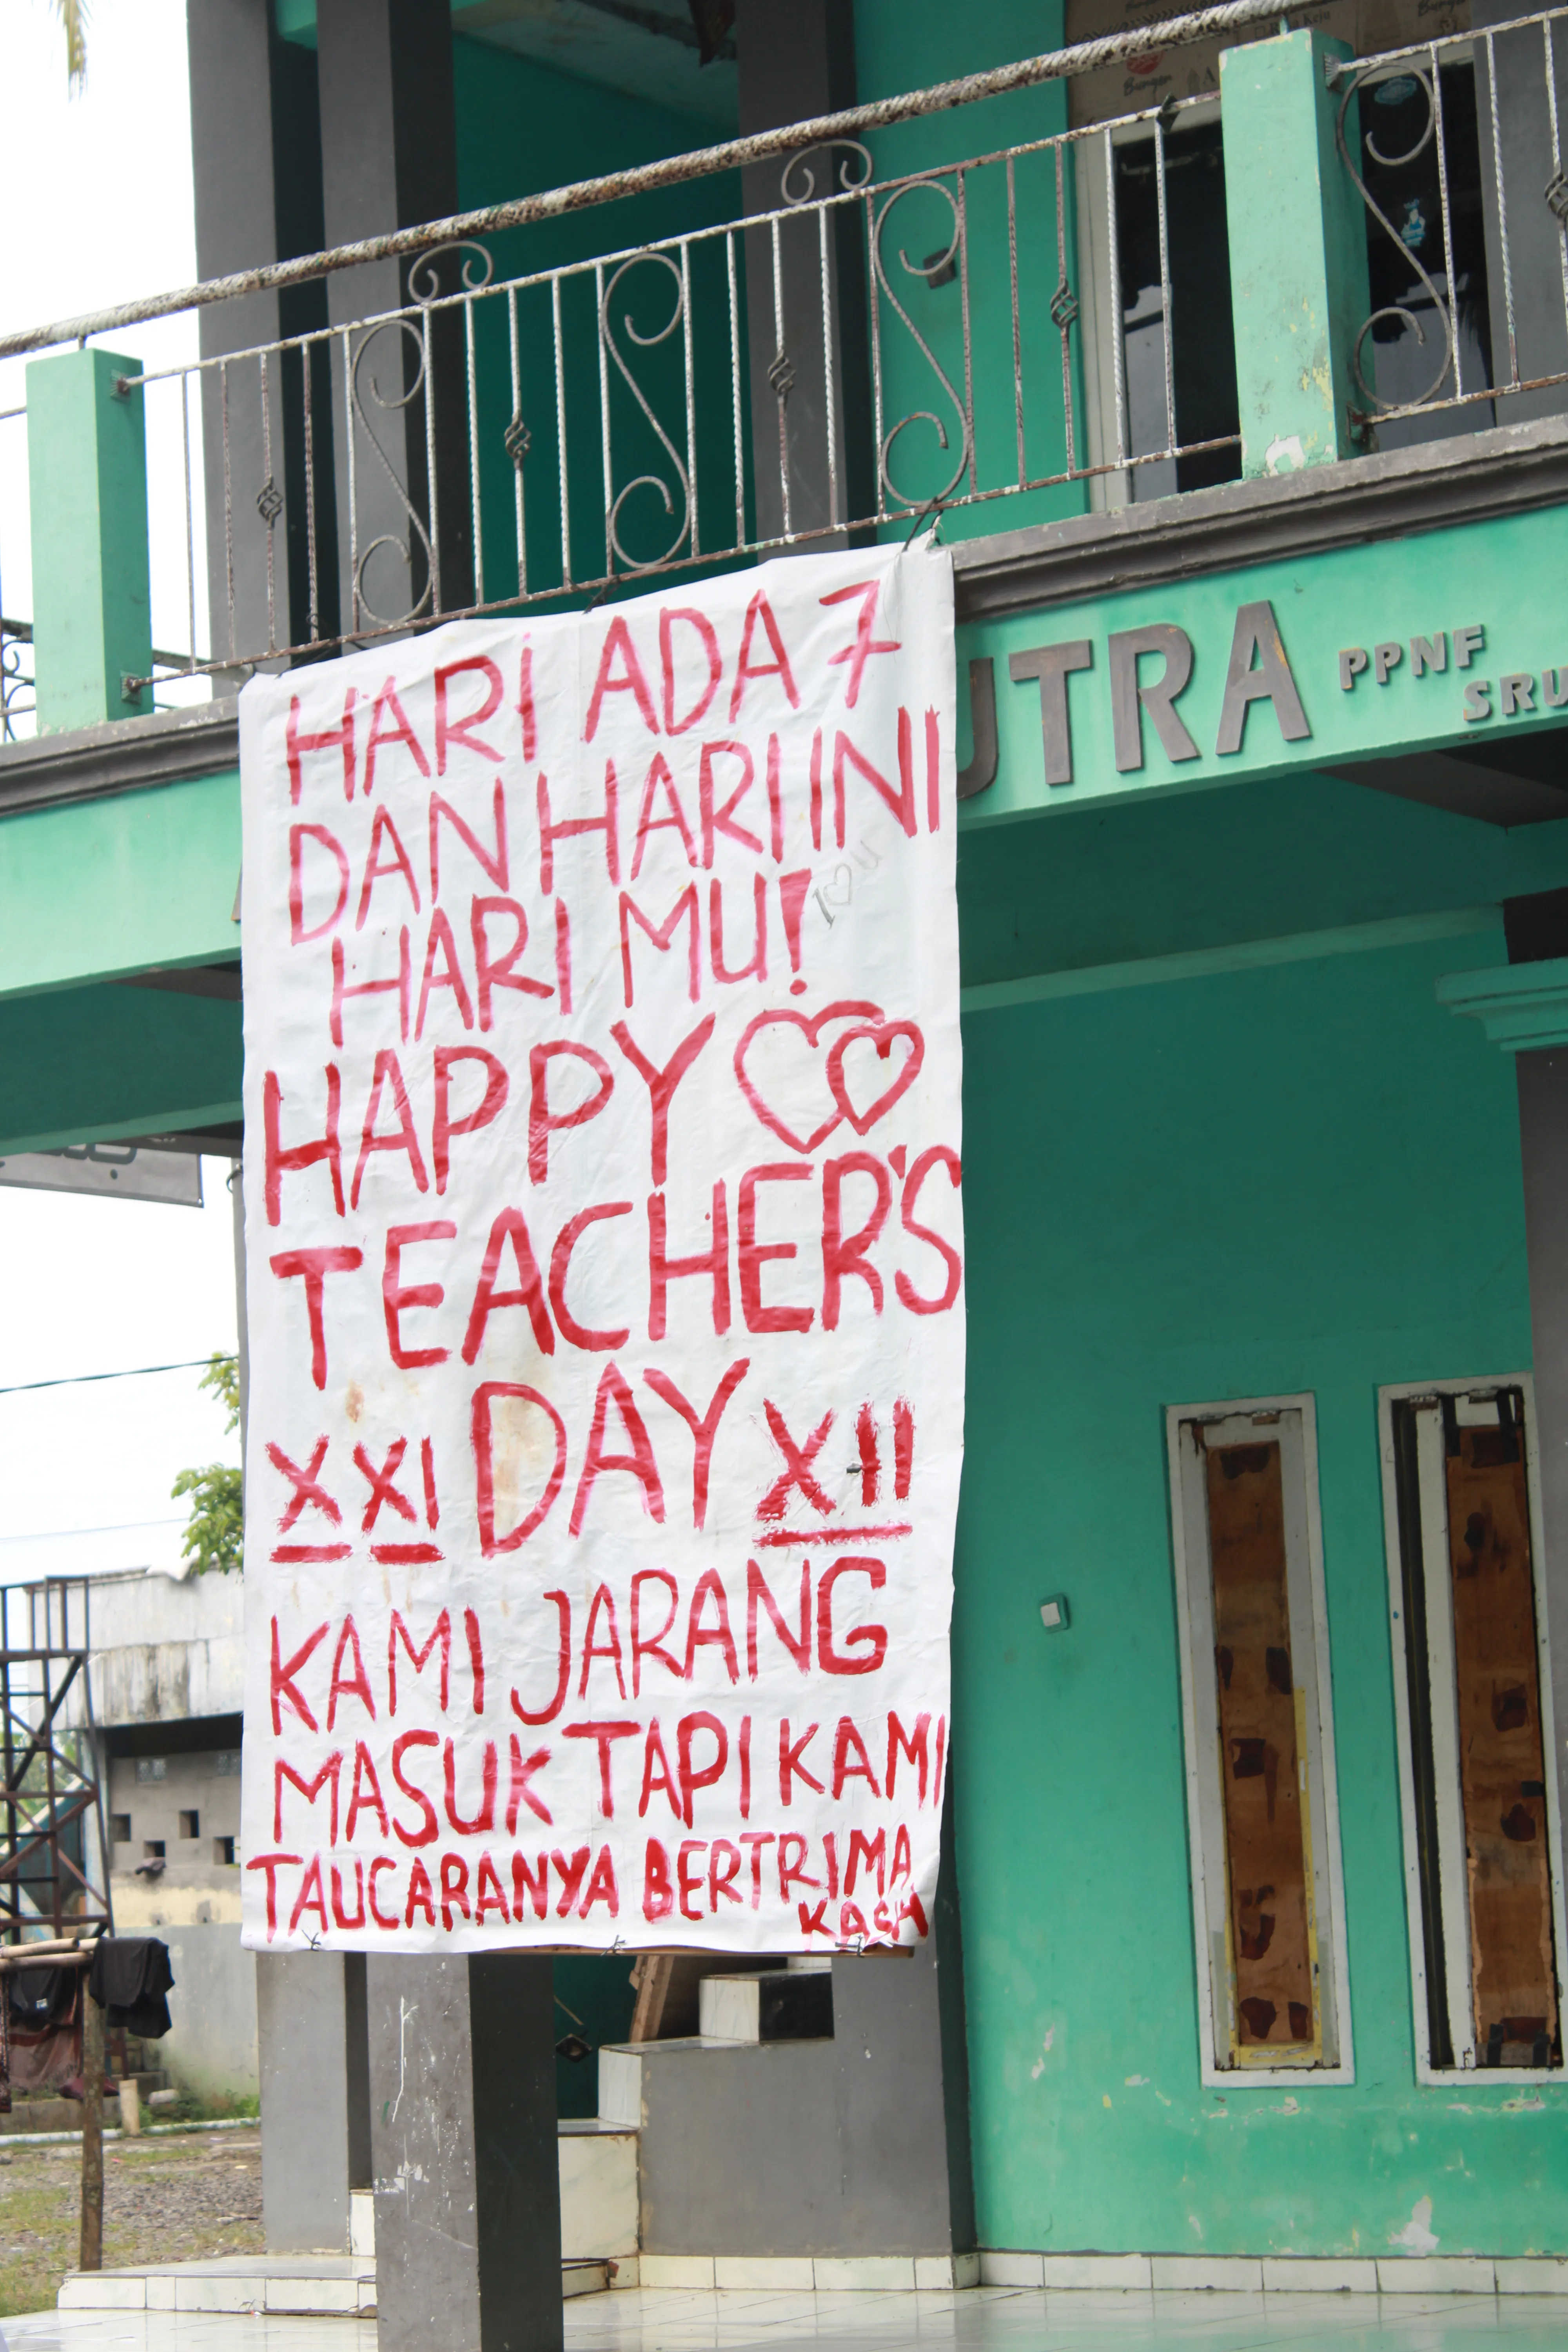 HARI ADA 7
DAN HARI INI
HARI MU!
I ♡ U
HAPPY
TEACHER'S
DAY
X XI XII
KAMI JARANG
MASUK TAPI KAMI
TAUCARANYA BERTRIMA
KASIH
UTRA
PPNF
SRU
Burger